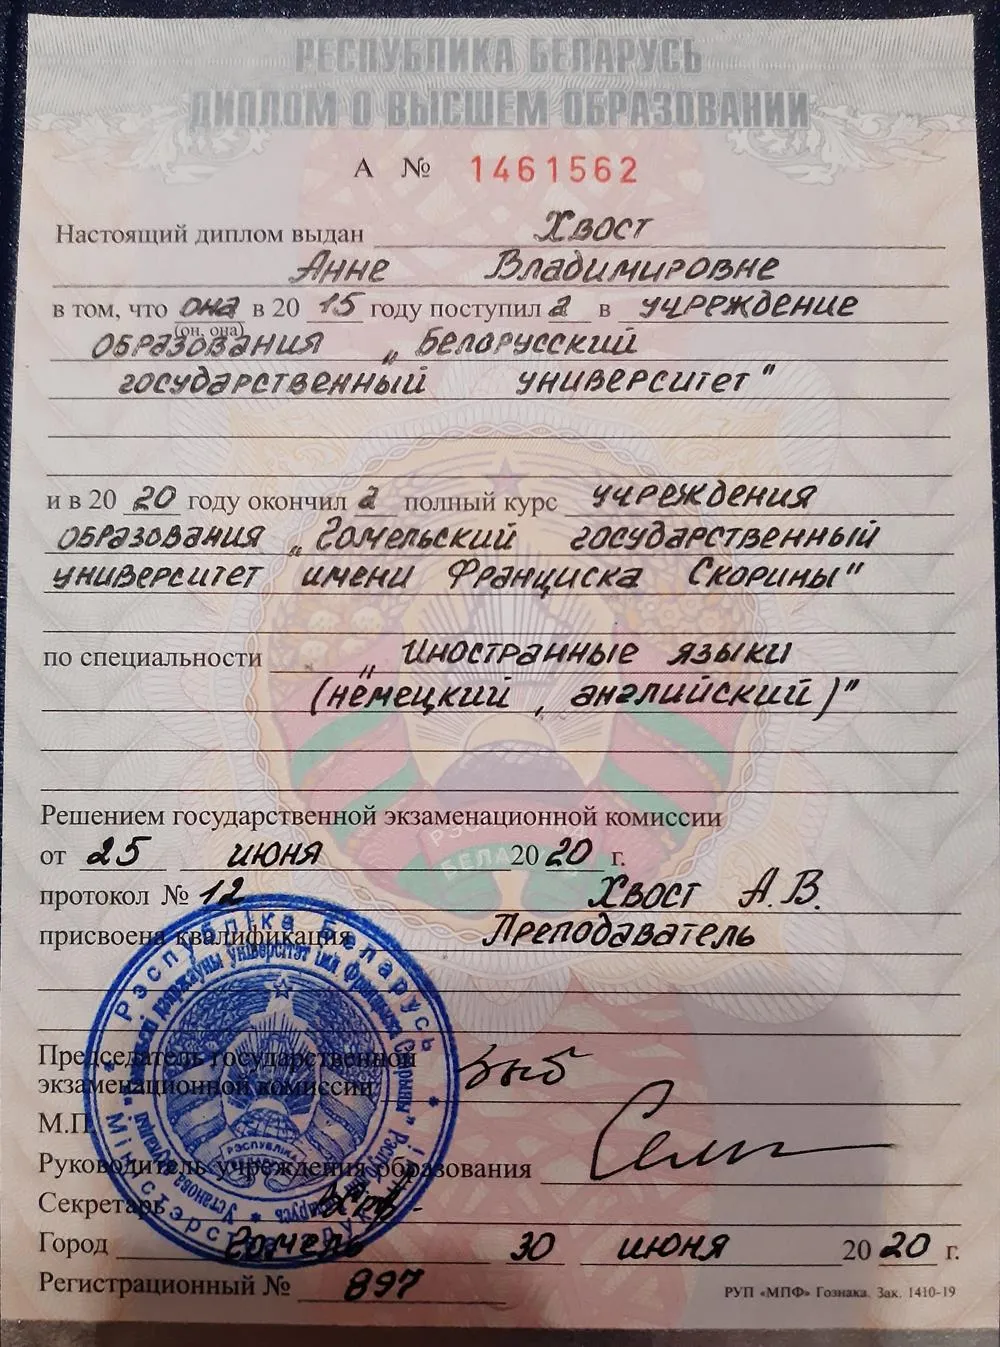 РЕСПУБЛИКА БЕЛАРУСЬ
ДИПЛОМ О ВЫСШЕМ ОБРАЗОВАНИИ
А № 1461562
Настоящий диплом выдан Хвост
Анне Владимировне
в том, что она в 20 15 году поступил а в учреждение
(он, она)
образования „Белорусский
государственный университет"
и в 20 20 году окончил а полный курс учреждения
образования „Гомельский государственный
университет имени Франциска Скорины"
по специальности „Иностранные языки
(немецкий, английский)"
Решением государственной экзаменационной комиссии
от 25 июня 20 20 г.
протокол № 12 Хвост А.В.
присвоена квалификация Преподаватель
Председатель государственной
экзаменационной комиссии
М.П.
Руководитель учреждения образования
Секретарь
Город Гомель 30 июня 20 20 г.
Регистрационный № 897
РУП «МПФ» Гознака. Зак. 1410-19
РЭСПУБЛІКА
БЕЛАРУСЬ
Рэспубліка Беларусь